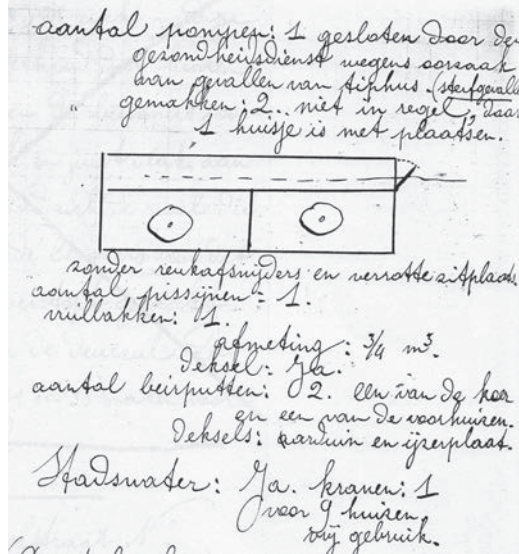 aantal pompen: 1 gesloten door de
gezondheidsdienst wegens oorzaak
van gevallen van tiphus. (sterfgevallen
" gemakken: 2... niet in regel, daar
1 huisje is met plaatsen.
zonder reukafsnijders en verrotte zitplaats
aantal pissijnen = 1.
vuilbakken: 1.
afmeting: 3/4 m³.
Deksel: Ja.
aantal beirputten: 2. een van de koer
en een van de voorhuizen.
Deksels: arduin en ijzerplaat.
Stadswater: Ja. kranen: 1
voor 9 huizen.
vrij gebruik.